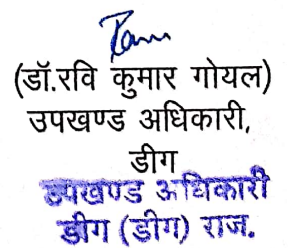 (डॉ.रवि कुमार गोयल)
उपखण्ड अधिकारी,
डीग
उपखण्ड अधिकारी
डीग (डीग) राज.